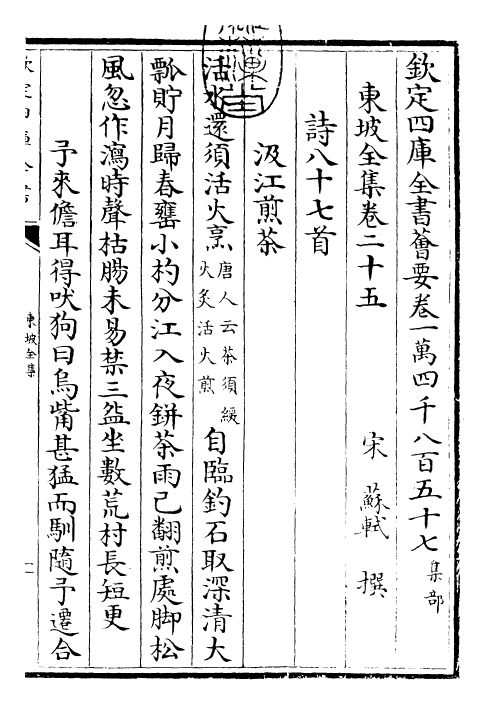 欽定四庫全書薈要卷一萬四千八百五十七 集部
東坡全集卷二十五
宋 蘇軾 撰
詩八十七首
汲江煎茶
活水還須活火烹 唐人云茶須緩
火炙活火煎 自臨釣石取深清大
瓢貯月歸春罋小杓分江入夜鉼茶雨已翻煎處脚松
風忽作瀉時聲枯腸未易禁三盌坐數荒村長短更
予來儋耳得吠狗曰烏觜甚猛而馴隨予遷合
欽定四庫全書
東坡全集